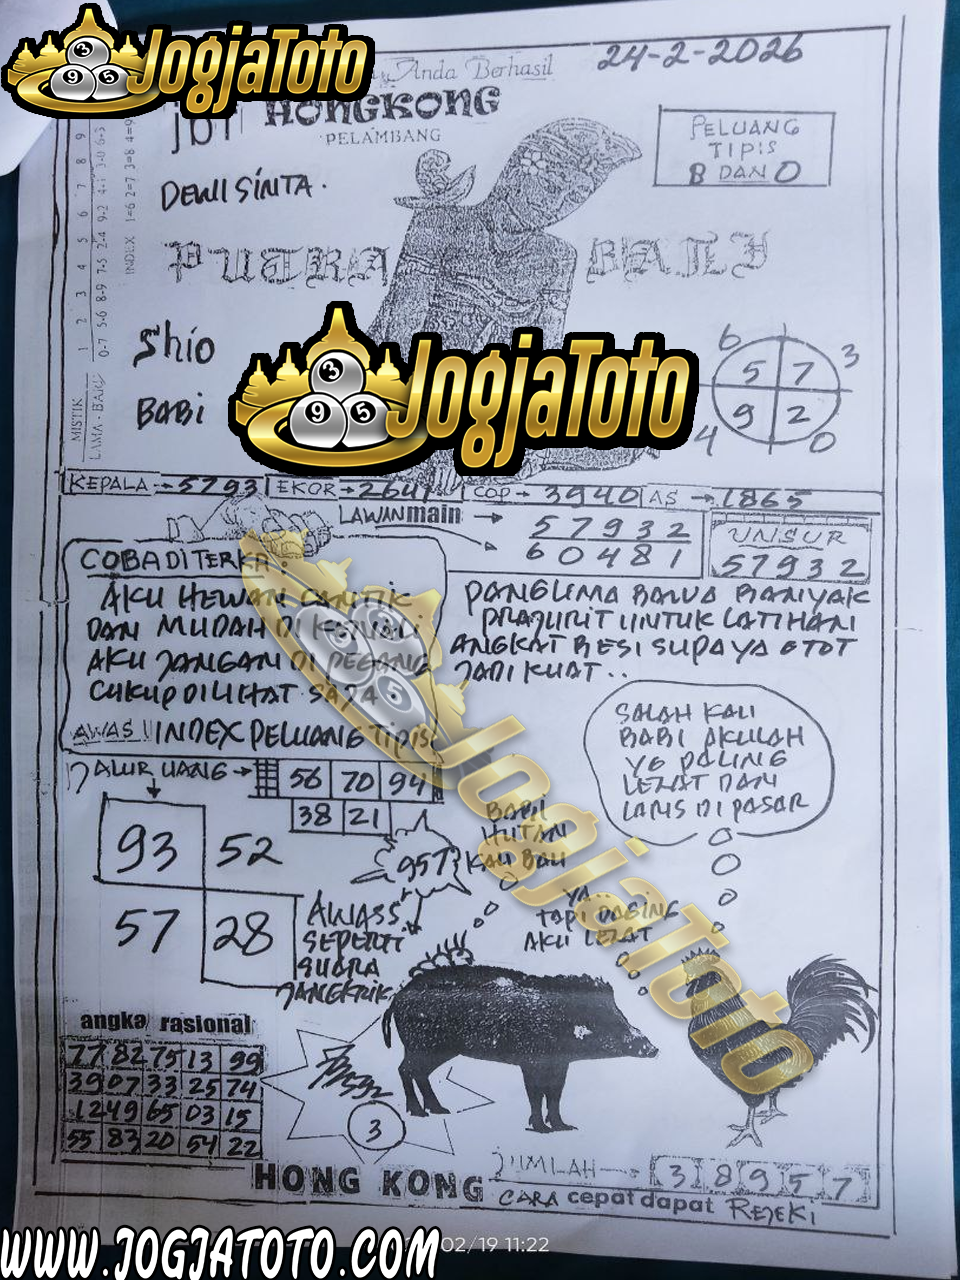 JogjaToto
Anda Berhasil
24-2-2026
HONGKONG
PELAMBANG
PELUANG
TIPIS
8 DAN 0
DEWI SINTA.
PUTRA BALI
Shio
BABI
MISTIK 1 2 3 4 5 6 7 8 9
LAMA - BARU 0-7 5-6 8-9 7-5 2-4 9-2 4-1 3-0 6-3
INDEX 1=6 2=7 3=8 4=9
JogjaToto
6 3
5 7
9 2
4 0
KEPALA → 5793 EKOR → 2641 COP → 3940 AS → 1865
LAWAN main → 57932
60481
UNSUR
57932
COBA DI TERKA :
AKU HEWAN CANTIK
DAN MUDAH DI
AKU JANGAN DI PEGANG
CUKUP DI LIHAT SAJA
AWAS !! INDEX PELUANG TIPIS
PANGLIMA BAWA BANYAK
PRAJURIT UNTUK LATIHAN
ANGKAT BESI SUPAYA OTOT
JADI KUAT ..
SALAH KALI
BABI AKULAH
YG PALING
LEZAT DAN
LARIS DI PASAR
ALUR UANG → 56 70 94
38 21
93 52
57 28
957
BABI
HUTAN
KALI BALI
YA..
TAPI DAGING
AKU LEZAT
AWASS
SEPERTI
SUARA
JANGKRIK
JogjaToto
angka rasional
77 82 75 13 99
39 07 33 25 74
12 49 65 03 15
55 83 20 54 22
3
JUMLAH → 3 8 9 5 7
HONG KONG
CARA cepat dapat REJEKI
WWW.JOGJATOTO.COM
02/19 11:22